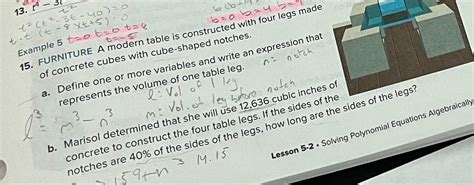 13.
Example 5
15. FURNITURE A modern table is constructed with four legs made
of concrete cubes with cube-shaped notches.
a. Define one or more variables and write an expression that
represents the volume of one table leg.
n = notch
l: Vol of 1 leg
m: Vol. of leg before notch
l³ = m³ - n³
b. Marisol determined that she will use 12,636 cubic inches of
concrete to construct the four table legs. If the sides of the
notches are 40% of the sides of the legs, how long are the sides of the legs?
3159 + n³ 14.15
Lesson 5-2 • Solving Polynomial Equations Algebraically